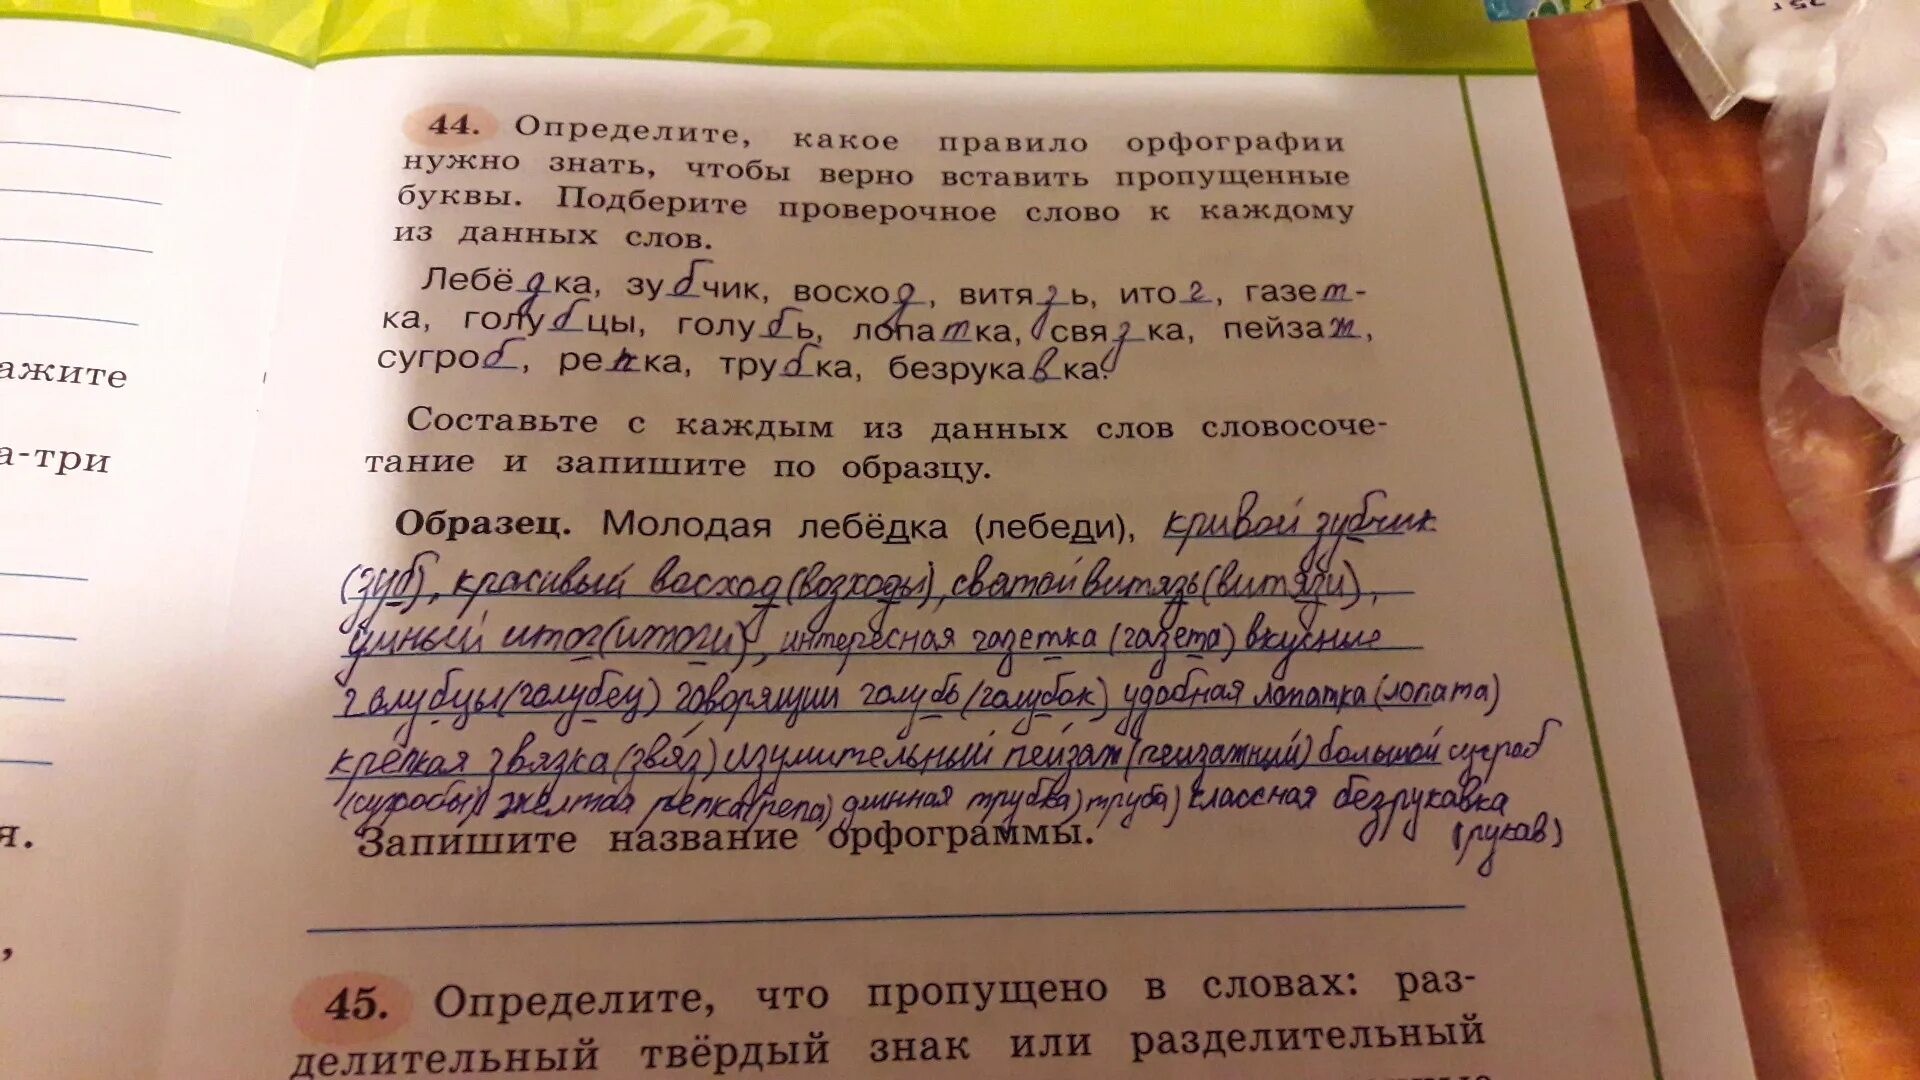 44. Определите, какое правило орфографии
нужно знать, чтобы верно вставить пропущенные
буквы. Подберите проверочное слово к каждому
из данных слов.
Лебёдка, зубчик, восход, витязь, итог, газет-
ка, голубцы, голубь, лопатка, связка, пейзаж,
сугроб, репка, трубка, безрукавка.
ажите
Составьте с каждым из данных слов словосоче-
тание и запишите по образцу.
а-три
Образец. Молодая лебёдка (лебеди), кривой зубчик
(зуб), красивый восход (возходы), сватой витязь (витязи),
умный итог (итоги), интересная газетка (газета) вкусные
голубцы (голубец) говорящии голубь (голубок) удобная лопатка (лопата)
крепкая звязка (звяз) изумительный пейзаж (пеизажций) большой сугроб
(сугробы) желтая репка (репа), длинная трубка) труба) классная безрукавка
(рукав)
я.
Запишите название орфограммы.
,
45. Определите, что пропущено в словах: раз-
делительный твёрдый знак или разделительный